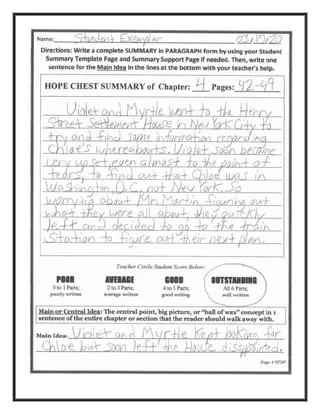 Name: Student Exemplar 03/17/20
Directions: Write a complete SUMMARY in PARAGRAPH form by using your Student
Summary Template Page and Summary Support Page if needed. Then, write one
sentence for the Main Idea in the lines at the bottom with your teacher's help.
HOPE CHEST SUMMARY of Chapter: 4 Pages: 42-49
Violet and Myrtle went to the Henry
Street Settlement House in New York City to
try and find some information regarding
Chloe's whereabouts. Violet soon became
very upset, even almost to the point of
tears, to find out that Chloe was in
Washington, D.C., not New York. So
worrying about Mr. Martin figuring out
what they were all about, they quickly
left and decided to go to the train
station to figure out their next plan.
Teacher Circle Student Score Below:
POOR AVERAGE GOOD OUTSTANDING
0 to 1 Parts; 2 to 3 Parts; 4 to 5 Parts; All 6 Parts;
poorly written average written good writing well written
Main or Central Idea: The central point, big picture, or "ball of wax" concept in 1
sentence of the entire chapter or section that the reader should walk away with.
Main Idea: Violet and Myrtle kept looking for
Chloe but soon left the House disappointed.